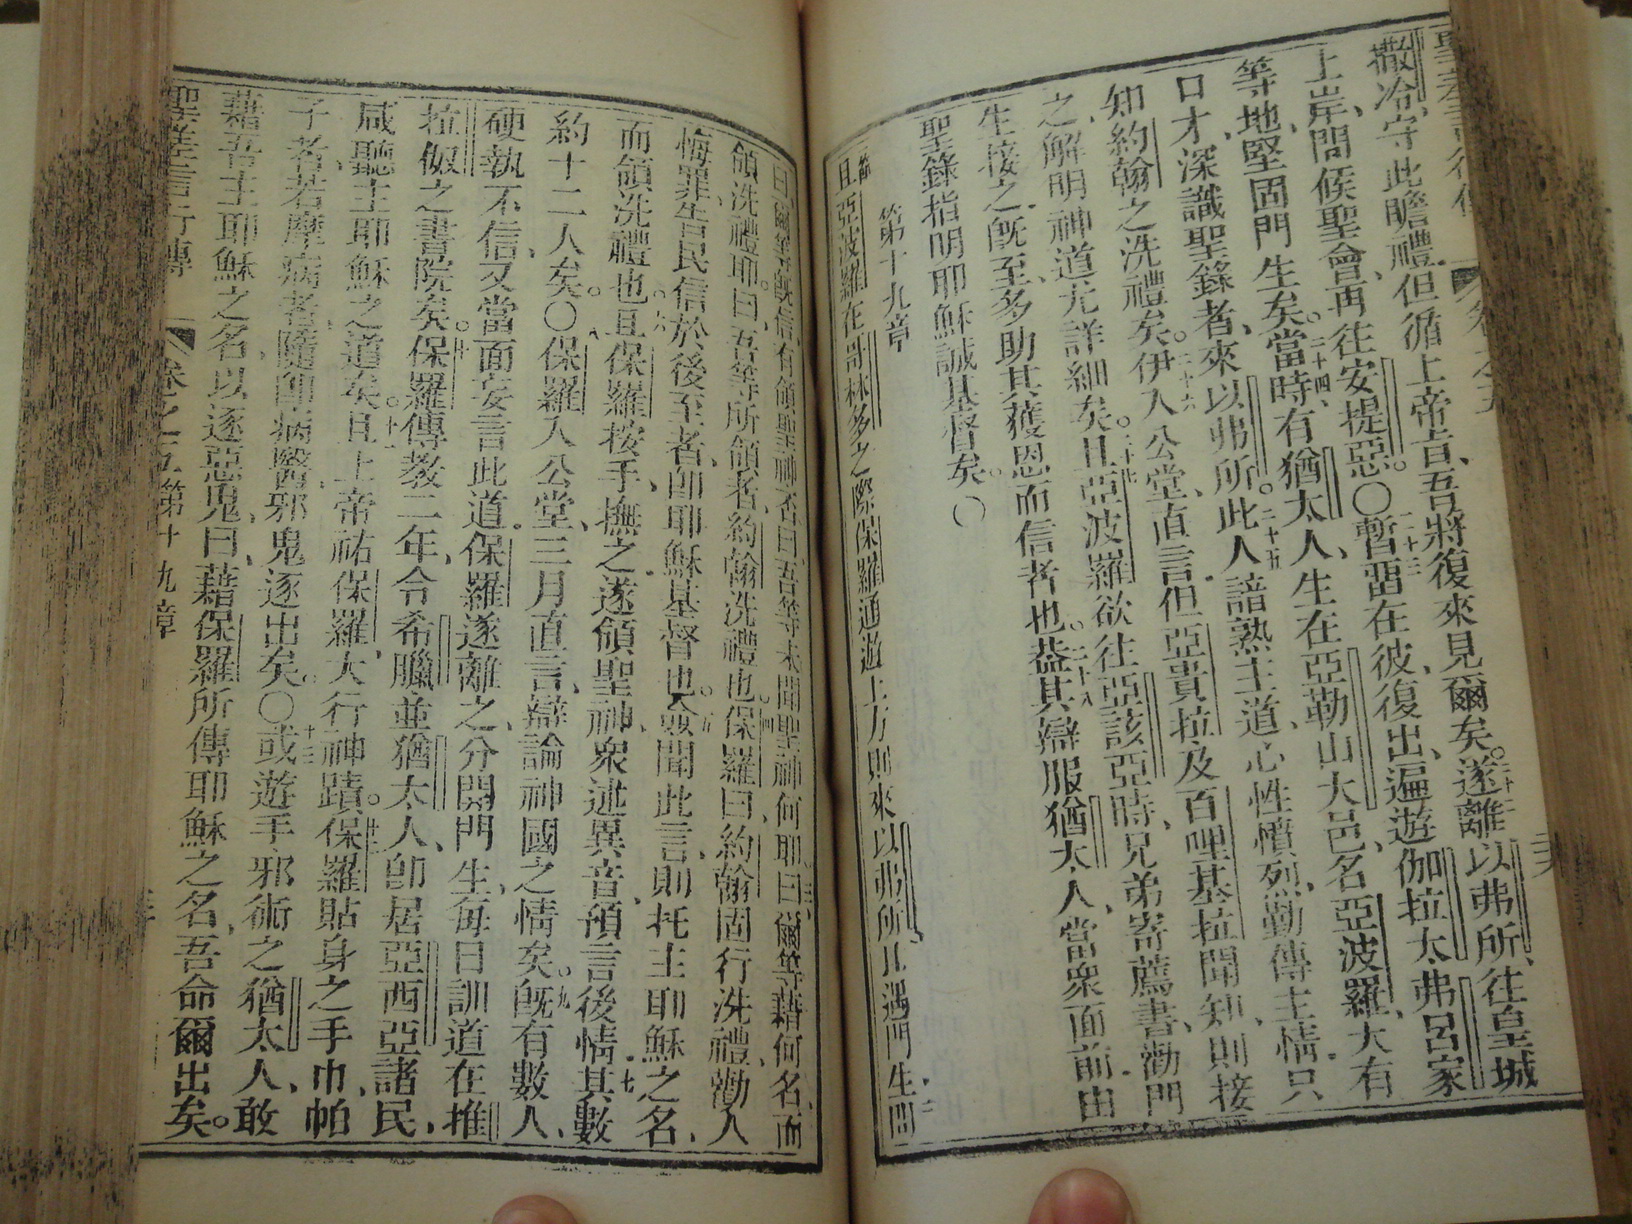 撒冷、守此瞻禮、但循上帝旨、吾將復來見爾矣。遂離以弗所、往皇城
上岸、問候聖會、再往安提惡。〇二十三暫畱在彼、復出、遍遊伽拉太、弗呂家
等地、堅固門生矣。二十四當時有猶太人、生在亞勒山大邑、名亞波羅、大有
口才、深識聖錄者、來以弗所。二十五此人諳熟主道、心性憤烈、勤傳主情、只
知約翰之洗禮矣。二十六伊入公堂、直言、但亞貴拉及百哩基拉聞知、則接
之、解明神道尤詳細矣。二十七且亞波羅欲往亞該亞時、兄弟寄薦書、勸門
生接之、旣至、多助其獲恩而信者也。二十八葢其辯服猶太人、當衆面前、由
聖錄指明耶穌誠基督矣。〇
第十九章
且亞波羅在哥林多之際、保羅通遊上方、則來以弗所、且遇門生、二問
曰、爾等旣信、有領聖神否、曰、吾等未聞聖神何耶、三曰、爾等藉何名、而
領洗禮耶。曰、吾等所領者、約翰洗禮也。四保羅曰、約翰固行洗禮、勸人
悔罪、告民信於後至者、卽耶穌基督也。五衆聞此言、則托主耶穌之名、
而領洗禮也。六且保羅按手、撫之、遂領聖神、衆述異音、預言後情、七其數
約十二人矣。〇八保羅入公堂、三月直言、辯論神國之情矣。九旣有數人、
硬執不信、又當面妄言此道、保羅遂離之、分開門生、每日訓道在推
拉伮之書院矣。十保羅傳教二年、令希臘並猶太人、卽居亞西亞諸民、
咸聽主耶穌之道矣。十一且上帝祐保羅、大行神蹟。十二保羅貼身之手巾、帕
子者、若摩病者、隨卽病醫、邪鬼逐出矣。〇十三或遊手邪術之猶太人、敢
藉吾主耶穌之名、以逐惡鬼、曰、藉保羅所傳耶穌之名、吾命爾出矣。
聖差言行傳 卷之五 第十九章